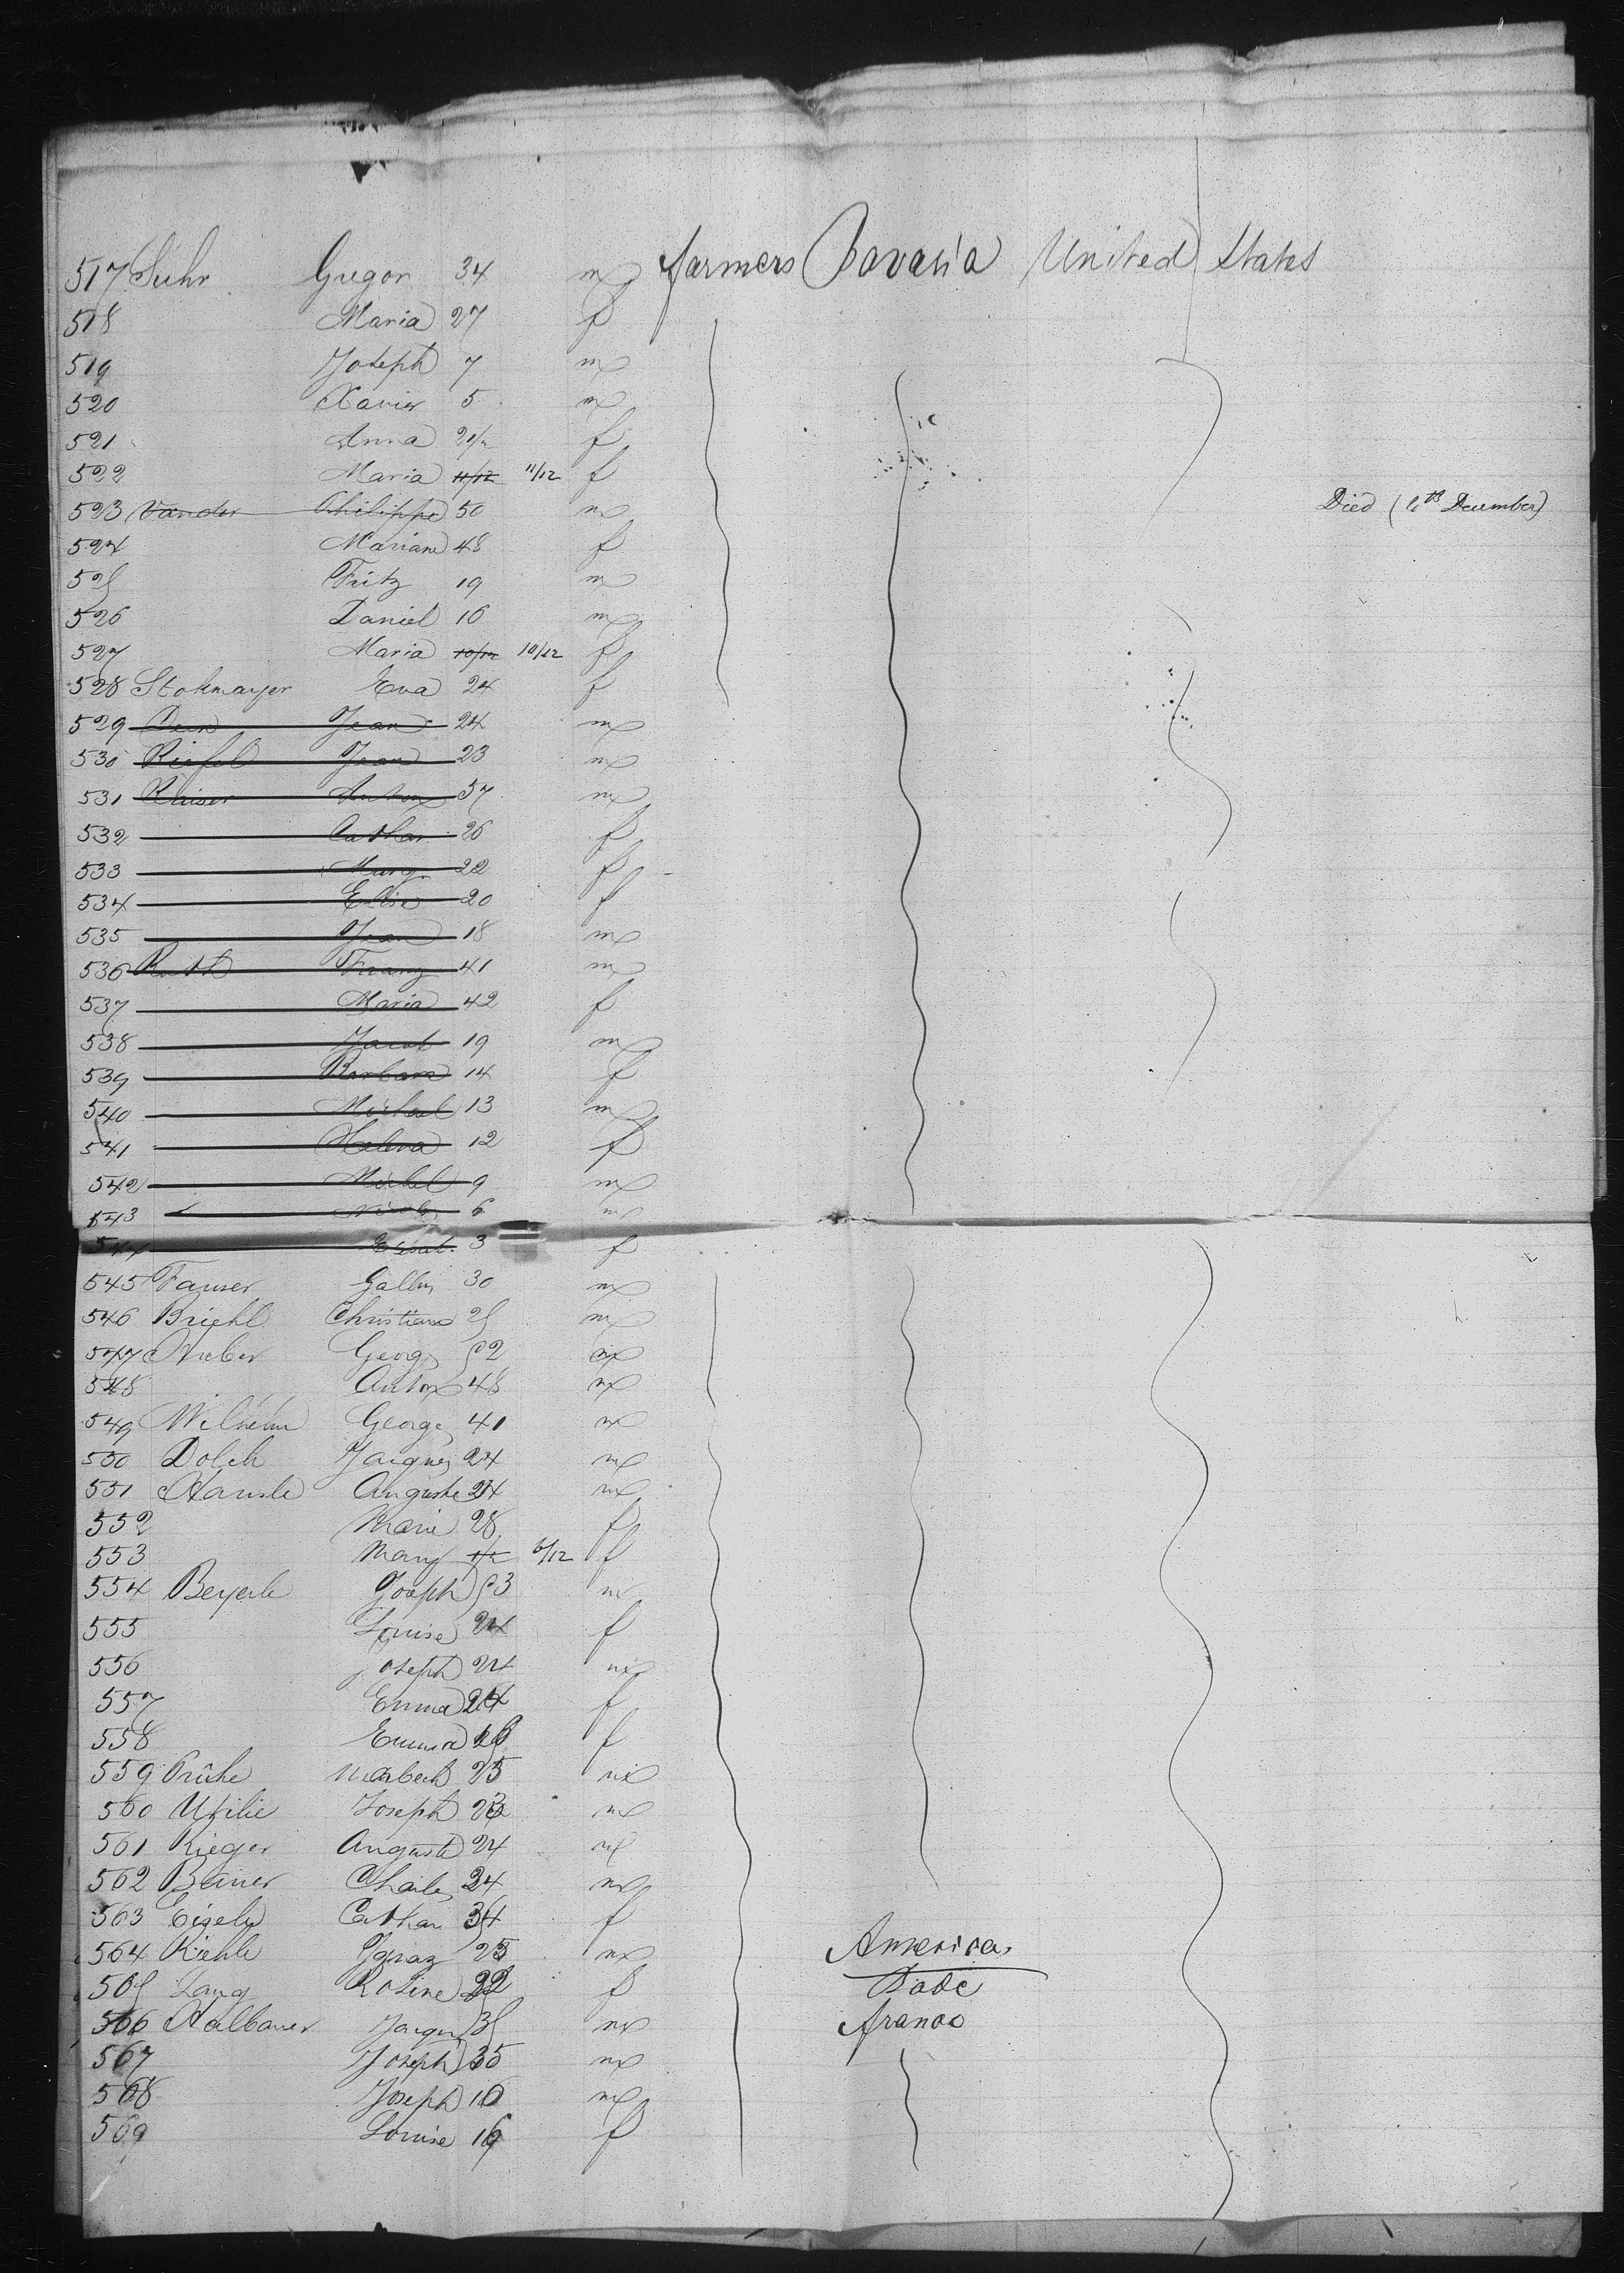 517 Suhr Gregor 34 m farmers Bavaria United States
518 Maria 27 f
519 Joseph 7 m
520 Xavier 5 m
521 Anna 2 1/2 f
522 Maria 11/12 11/12 f
523 Vander Philippe 50 m Died (6th December)
524 Mariane 48 f
525 Fritz 19 m
526 Daniel 16 m
527 Maria 10/12 10/12 f
528 Stokmayer Eva 24 f
529 Jean 24 m
530 Jean 23 m
531 Kaiser Anton 57 m
532 Cathar. 26 f
533 Marg. 22 f
534 Elise 20 f
535 Jean 18 m
536 Roth Franz 41 m
537 Maria 42 f
538 Jacob 19 m
539 Barbara 14 f
540 Michael 13 m
541 Helena 12 f
542 Michel 9 m
543 6 m
544 Elisab. 3 f
545 Fauser Gallus 30 m
546 Briehl Christians 25 m
547 Georg 52 m
548 Anton 48 m
549 Wilhelm George 41 m
550 Dolch Jacques 24 m
551 Hansle Auguste 24 m
552 Marie 28 f
553 Mary 6/12 f
554 Beyerle Joseph 53 m
555 Louise 24 f
556 Joseph 24 m
557 Emma 24 f
558 Emma f
559 25 m
560 Joseph m
561 Rieger Auguste 24 m
562 Charles 24 m
563 Eigely Cathar 34 f
564 Riehle Ignaz 25 m America
565 Lang Rosine 22 f Bade
566 Halbauer Jacques 35 m france
567 Joseph 35 m
568 Joseph 16 m
569 Louise 16 f